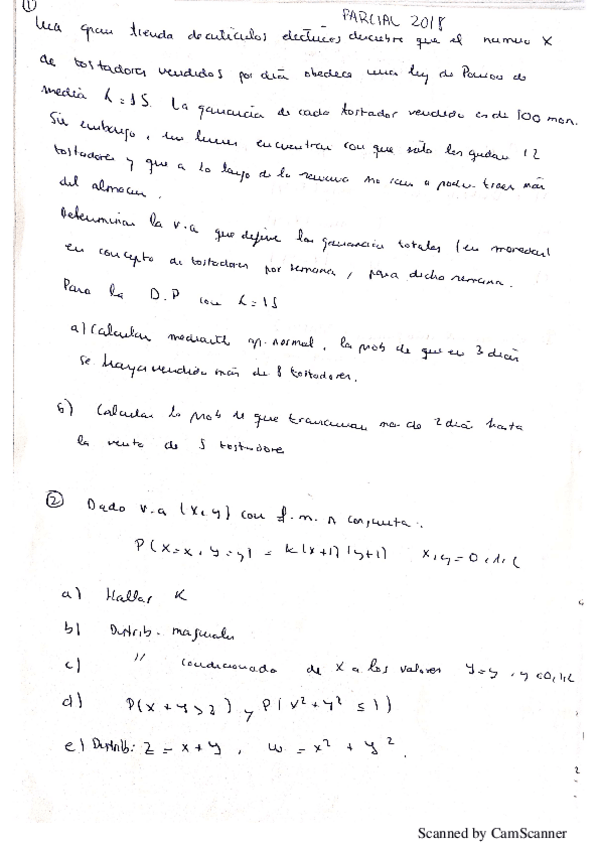 ① PARCIAL 2018
Una gran tienda de artículos eléctricos descubre que el numero X
de tostadores vendidos por día obedece una ley de Poisson de
media λ=1S. La ganancia de cada tostador vendido es de 100 mon.
Sin embargo, un lunes encuentran con que sólo les quedan 12
tostadores y que a lo largo de la semana no van a poder traer más
del almacen.
Determinar la v.a que define las ganancias totales (en monedas)
en concepto de tostadores por semana, para dicha semana.
Para la D.P con λ=1S
a) Calcular mediante ap. normal, la prob de que en 3 días
se haya vendido más de 8 tostadores.
b) Calcular la prob de que transcurran mas de 2 días hasta
la venta de 5 tostadores
② Dado v.a (X,Y) con f.m.p conjunta:
P(X=x, Y=y) = k(x+1)(y+1) x,y=0,1,2
a) Hallar K
b) Distrib. marginales
c) " condicionada de X a los valores Y=y, y=0,1,2
d) P(X+Y>2) y P(X²+Y² ≤ 1)
e) Distrib: Z = X+Y, W = X² + Y².
Scanned by CamScanner